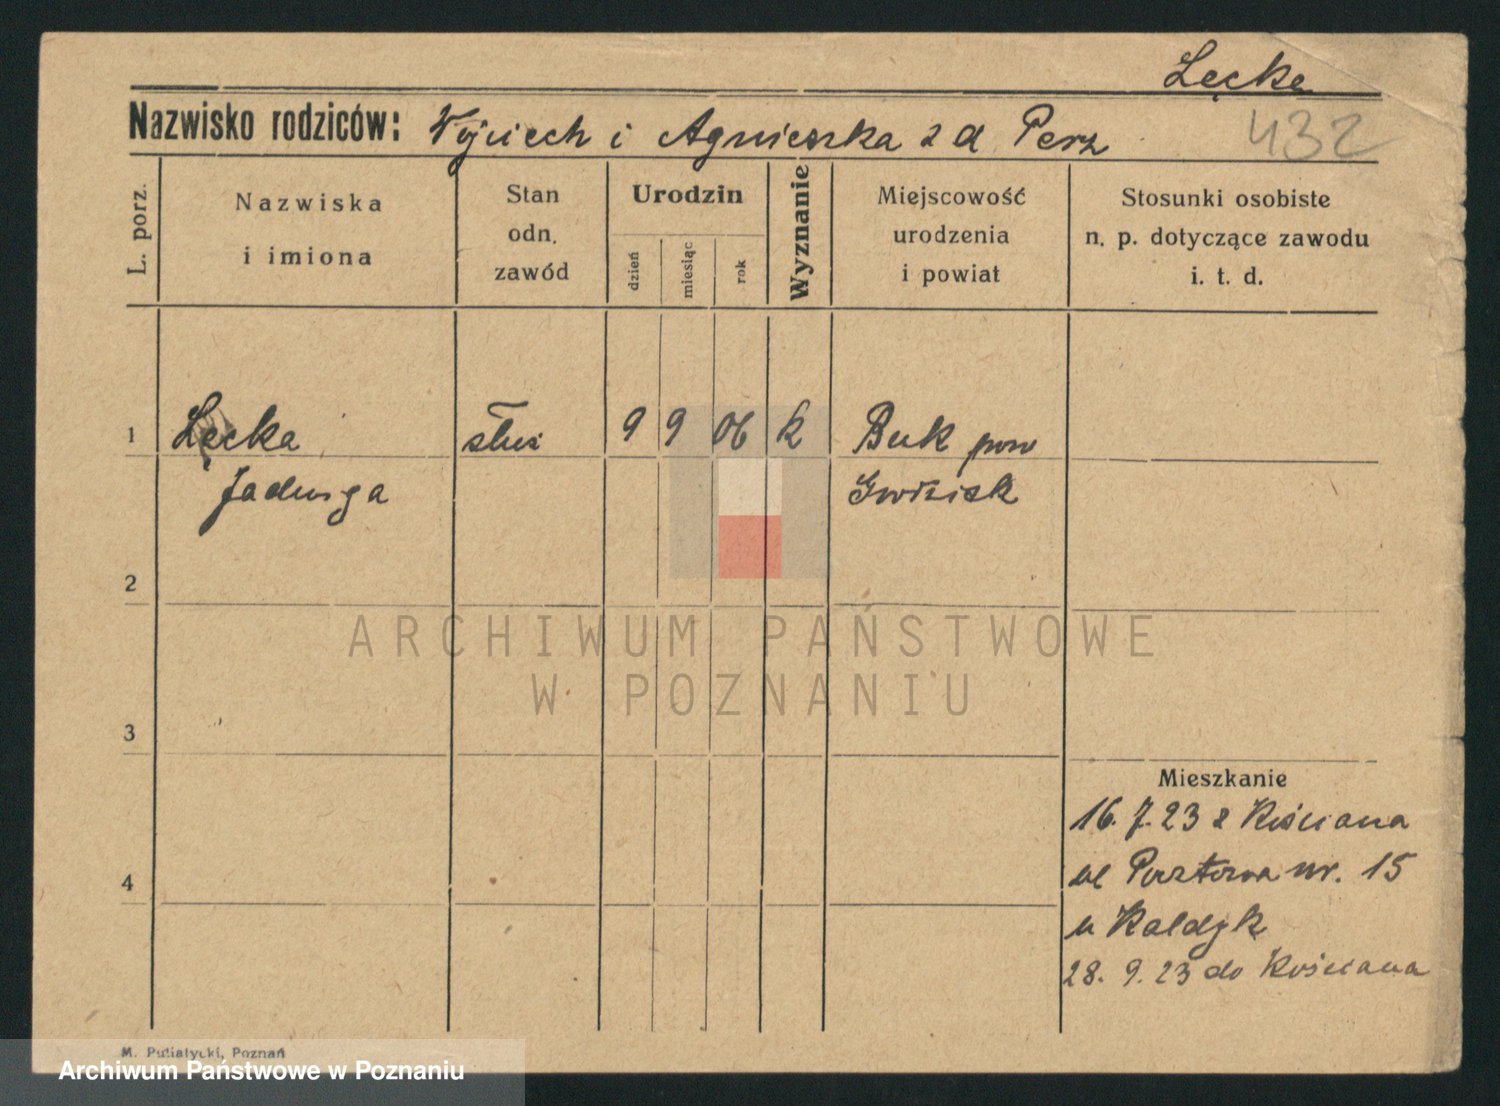 Łęcka
Nazwisko rodziców: Wojciech i Agnieszka z d Perz
432
L. porz.
Nazwiska
i imiona
Stan
odn.
zawód
Urodzin
dzień
miesiąc
rok
Wyznanie
Miejscowość
urodzenia
i powiat
Stosunki osobiste
n. p. dotyczące zawodu
i. t. d.
1 Łęcka służ 9 9 06 k Buk pow
Jadwiga Grodzisk
2
ARCHIWUM PAŃSTWOWE
W POZNANIU
3
Mieszkanie
16. 7. 23 z Kościana
ul Pocztowa nr. 15
4
u Kaldyk
28. 9. 23 do Kościana
M. Putiatycki, Poznań
Archiwum Państwowe w Poznaniu